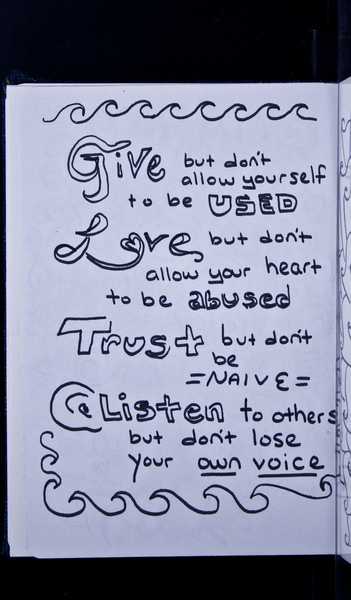 Give but don't
allow yourself
to be USED
Love but don't
allow your heart
to be abused
Trust but don't
be
=NAIVE=
Listen to others
but don't lose
your own voice